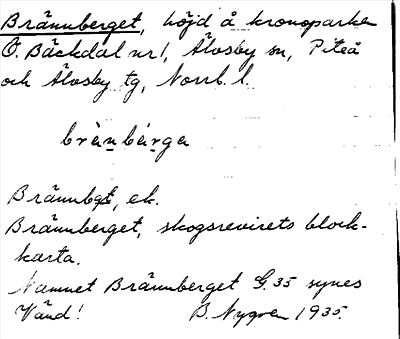 Brännberget, höjd å kronoparken
Ö. Bäckdal nr 1, Älvsby sn, Piteå
och Älvsby tg, Norrb. l.
brä̀n̲bær̲ga
Brännbgt, ek.
Brännberget, skogsrevirets block-
karta.
Namnet Brännberget G. 35 synes
Vänd! B. Nygren 1935.